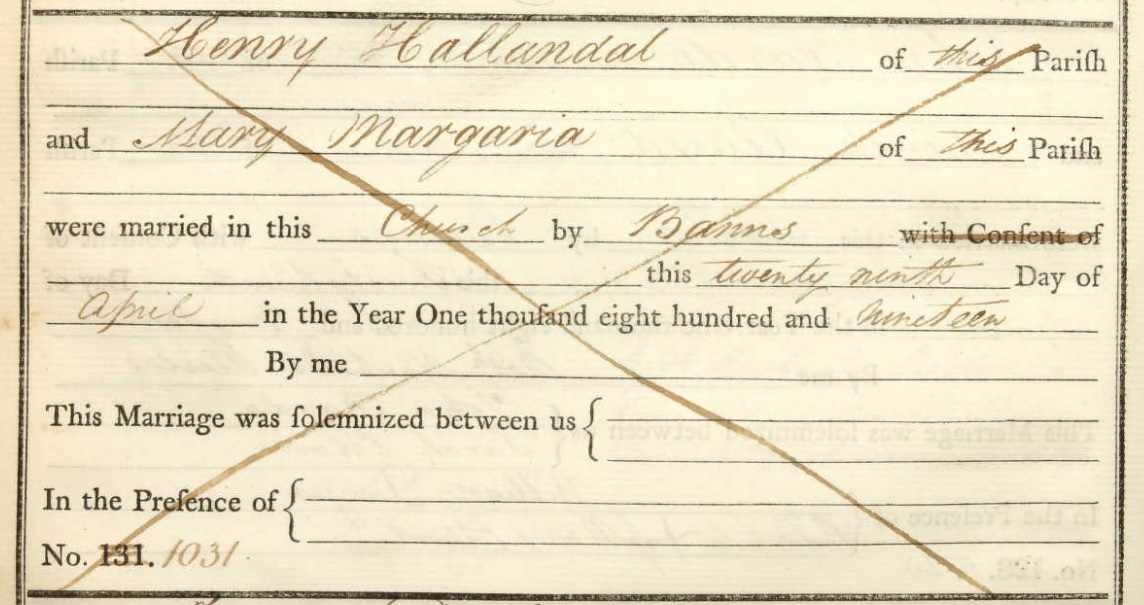 Henry Hallandal of this Pariſh
and Mary Margaria of this Pariſh
were married in this Church by Banns with Conſent of
this twenty ninth Day of
April in the Year One thouſand eight hundred and nineteen
By me
This Marriage was ſolemnized between us {
In the Preſence of {
No. 131. 1031